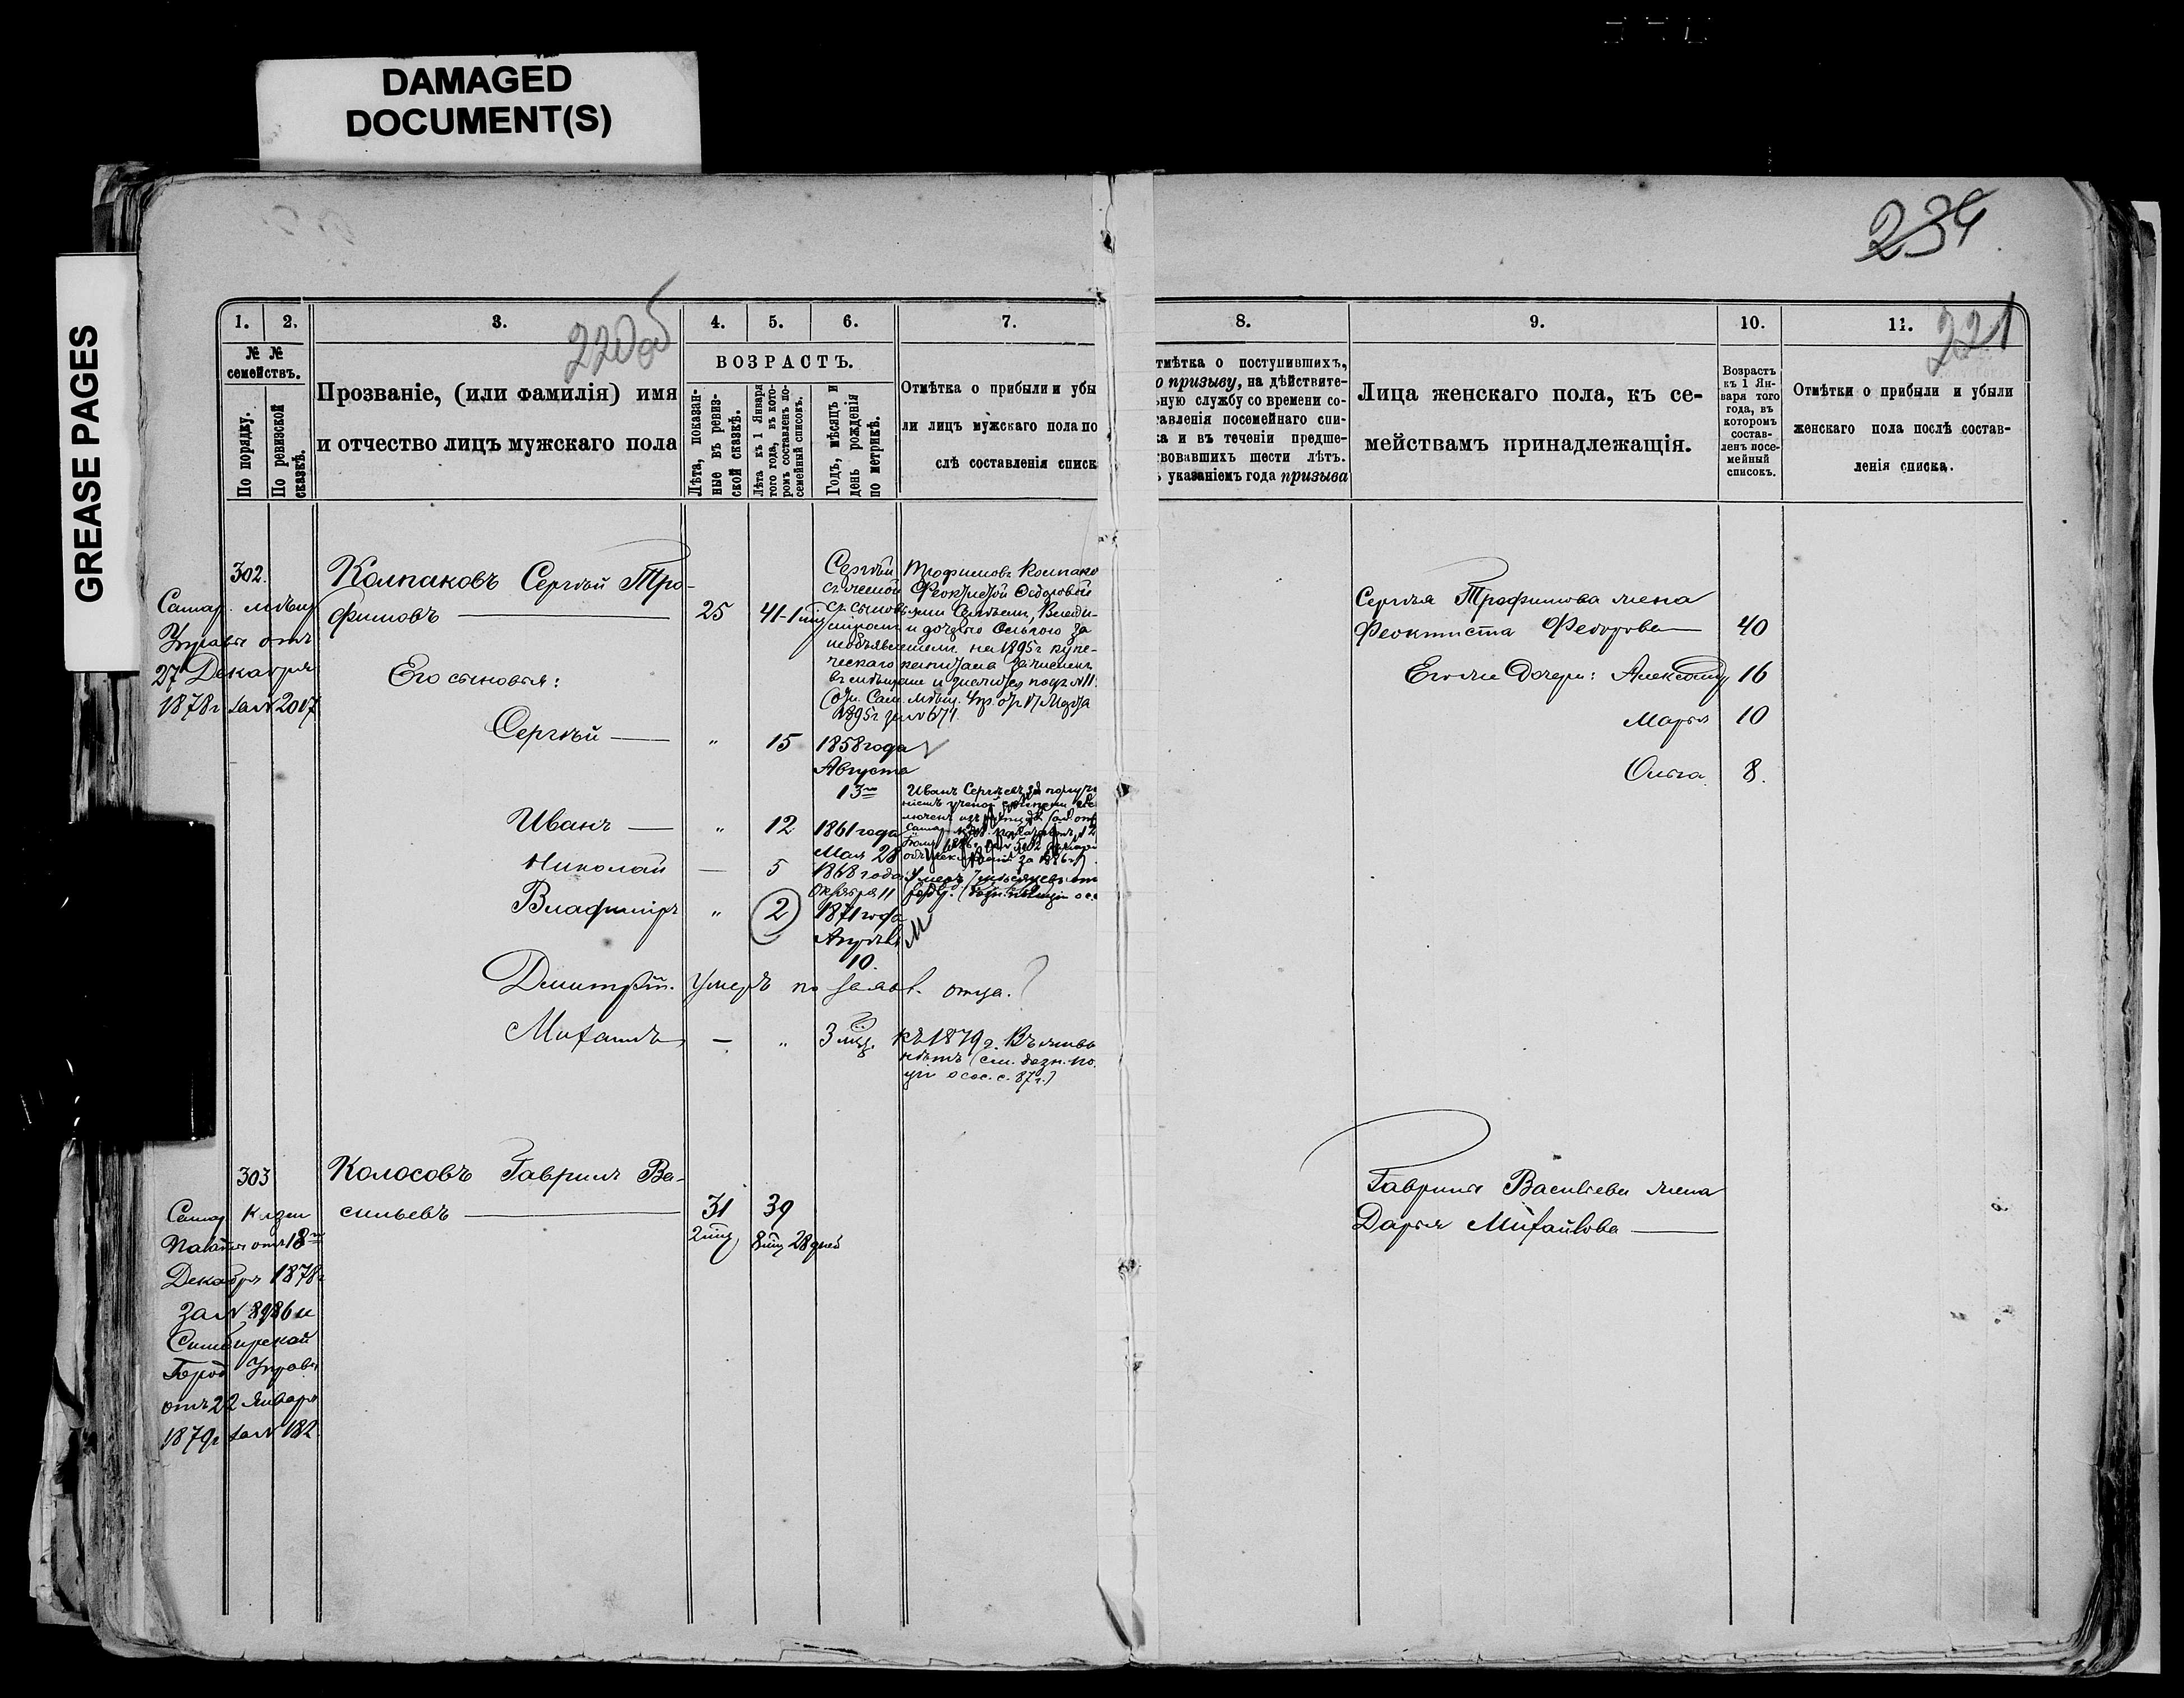 DAMAGED
DOCUMENT(S)
GREASE PAGES
234
220об
221
1.
2.
3.
4.
5.
6.
7.
8.
9.
10.
11.
№ №
семействъ.
По порядку.
По ревизской
сказкѣ.
Прозваніе, (или фамилія) имя
и отчество лицъ мужскаго пола
ВОЗРАСТЪ.
Лѣта, показан-
ные въ ревиз-
ской сказкѣ.
Лѣта къ 1 Января
того года, въ кото-
ромъ составленъ по-
семейный списокъ.
Годъ, мѣсяцъ и
день рожденія
по метрикѣ.
Отмѣтка о прибыли и убы
ли лицъ мужскаго пола по
слѣ составленія списк
тмѣтка о поступившихъ,
о призыву, на дѣйствите-
ьную службу со времени со-
тавленія посемейнаго спи-
ка и въ теченіи предше-
твовавшихъ шести лѣтъ.
ъ указаніемъ года призыва
Лица женскаго пола, къ се-
мействамъ принадлежащія.
Возрастъ
къ 1 Ян-
варя того
года, въ
которомъ
состав-
ленъ посе-
мейный
списокъ.
Отмѣтки о прибыли и убыли
женскаго пола послѣ состав-
ленія списка.
302.
Самар. мѣщ
Управы отъ
27 Декабря
1878г за № 2017
Колпаковъ Сергѣй Тро-
фимовъ
25
41-1
Сергѣй Трофимовъ Колпако
съ женой Феоктистой Федоровой
съ сыновьями Сергѣемъ, Влади-
міромъ и дочерью Ольгою за
необъявленіемъ на 1895г купе-
ческаго капитала зачислен
въ мѣщане и значится под № 11
(От. Сам. мѣщ. Упр. от 17 Марта
1895г за № 671
Его сыновья:
Сергѣй — „ 15 1858 года
Августа
13го
Иванъ — „ 12 1861 года
Мая 28
Иванъ Сергѣевъ за получе
ніемъ ученой степени
Николай — 5 1868 года
Октября 11
Умеръ
Владиміръ „ 2 1871 года
10.
Дмитрій. Умеръ по заявл. отца.
Михаилъ — „ 3 мѣс. къ 1879 г. Въ живы
нѣтъ (см. дозн. по
ціи о сос. с. 87 г.)
Сергѣя Трофимова жена
Феоктиста Федорова — 40
Его же дочери: Александр 16
Марья 10
Ольга 8.
303
Самар. Казен
Палаты отъ 18го
Декабря 1878г
за № 8986 и
Симбирской
Город Управы
отъ 22 Января
1879г за № 182
Колосовъ Гаврилъ Ва-
сильевъ — 31 39
2 мѣс 8 мѣс 28 дней
Гаврилы Васильева жена
Дарья Михайлова